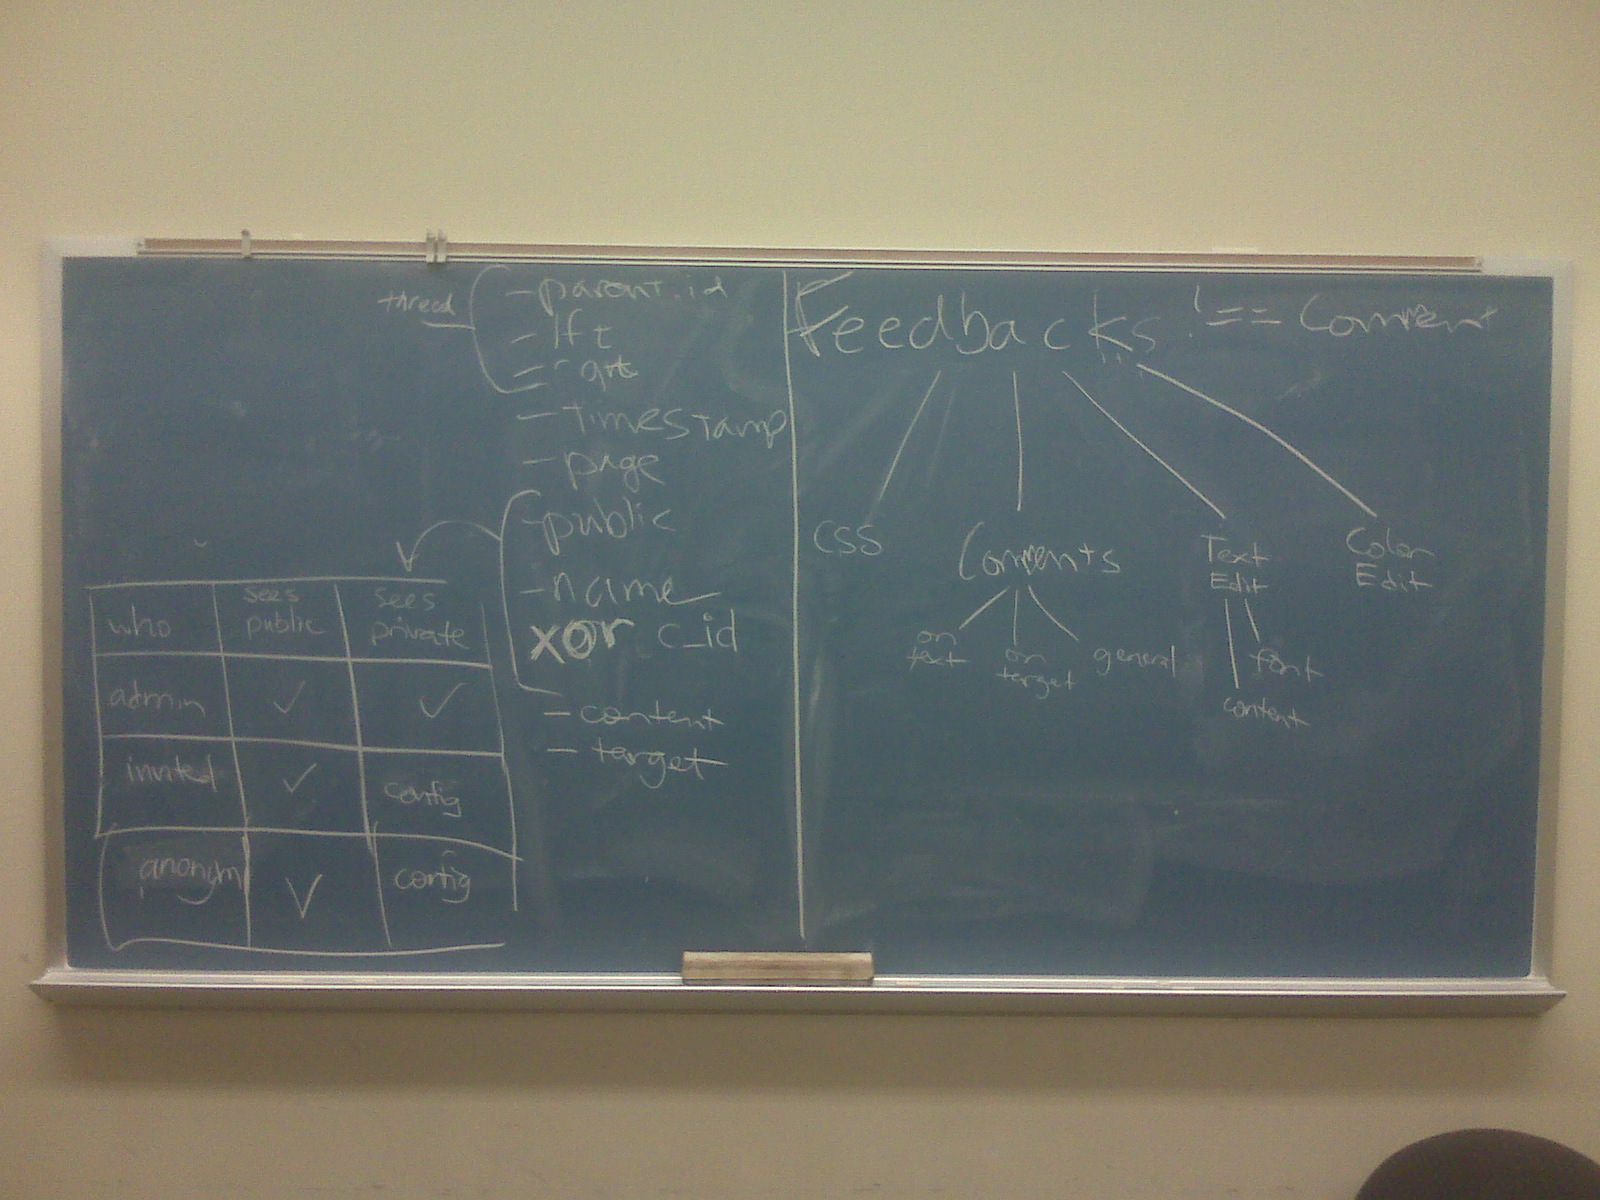 thread
- parent.id
- lft
- rgt
- timestamp
- page
- public
- name
xor c_id
- content
- target
who
sees public
sees private
admin ✓ ✓
invited ✓ config
anonym ✓ config
Feedbacks !== Comment
CSS
Comments
Text
Edit
Color
Edit
on
text
on
target
general
font
content